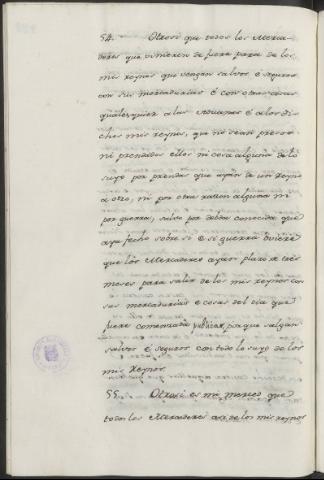 54. Otrosi que todos los Merca-
dores que vinieren de fuera parte de los
mis reynos que vengan salvos é seguros
con sus mercadurias é con otras cosas
qualesquier a las é a los di-
chos mis reynos, que no sean presos
ni prendados ellos ni cosa alguna de lo
suyo por prendas que ayan de un Reyno
a otro, ni por otra razon alguna ni
por guerra, salvo por debda conocida que
aya fecho sobre si é si guerra oviere
que los Mercadores ayan plazo de tres
meses para salir de los mis reynos con
sus mercadurias é cosas del dia que
fuere comenzada publicar, porque salgan
salvos é seguros con todo lo suyo de los
mis Reynos.
55. Otrosi es mi merced que
todos los Mercadores asi de los mis reynos